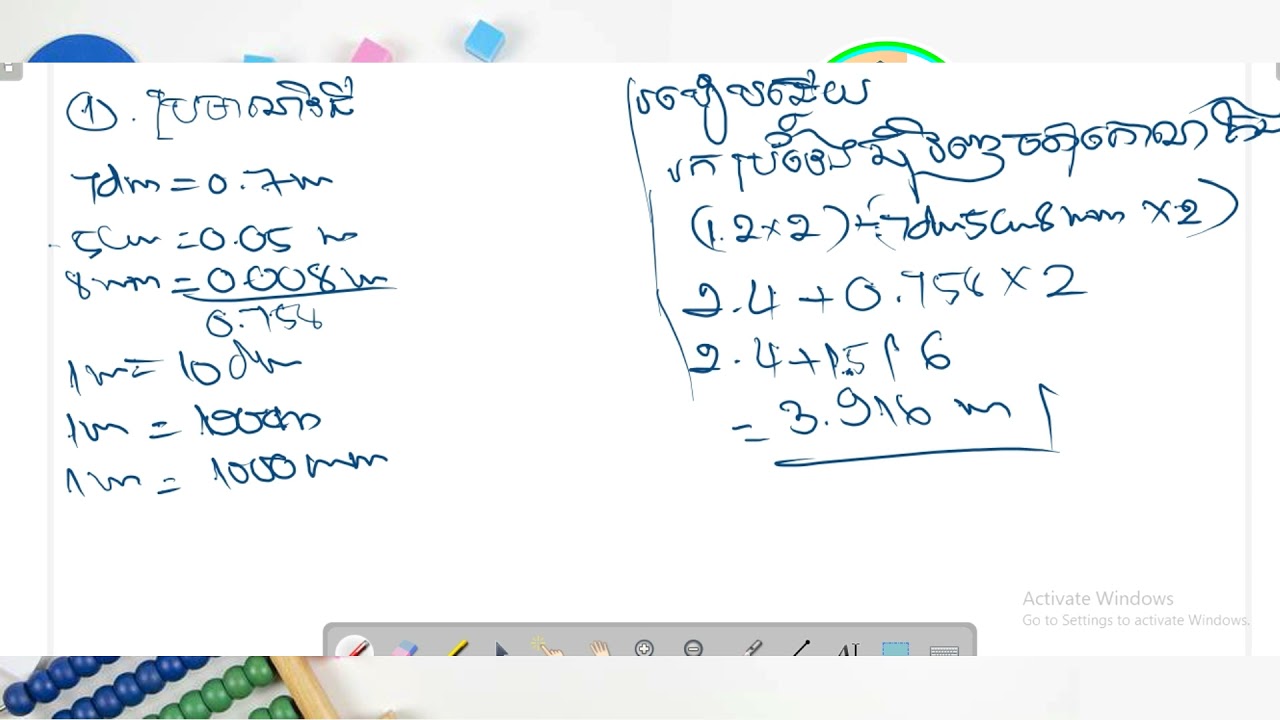 ①. ប្រមាណវិធី
7dm = 0.7m
5cm = 0.05 m
8mm = 0.008m
0.758
1m = 10dm
1m = 100cm
1m = 1000mm
របៀបឆ្លើយ
រក
(1.2×2)+(7dm5cm8mm ×2)
2.4 + 0.758 × 2
2.4 + 1.516
= 3.916 m
Activate Windows
Go to Settings to activate Windows.